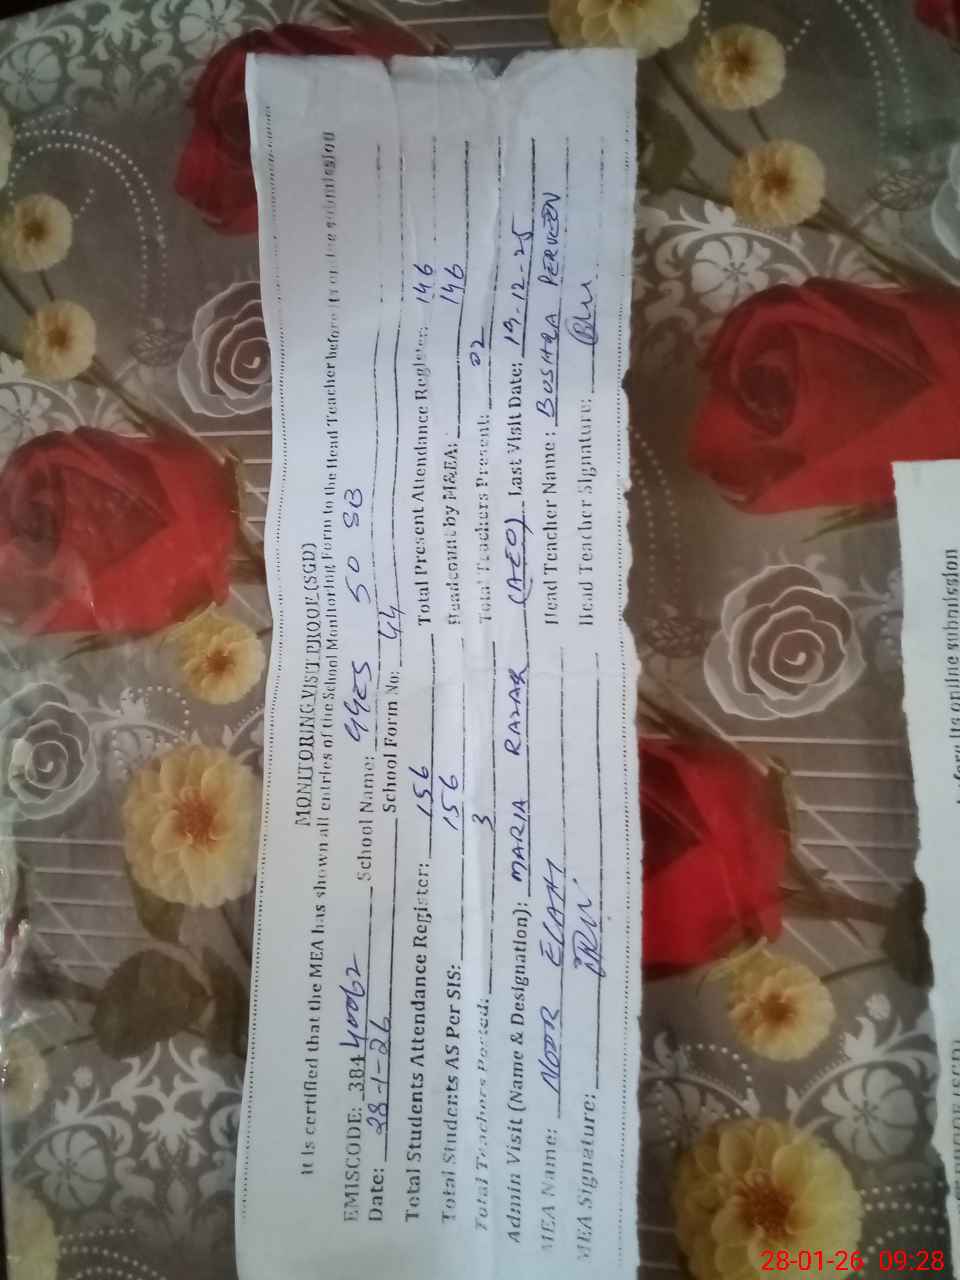 MONITORING VISIT PROOF (SGD)
It is certified that the MEA has shown all entries of the School Monitoring Form to the Head Teacher before its online submission
EMISCODE: 38440062 School Name: GGES 50 SB
Date: 28-1-26 School Form No: 44
Total Students Attendance Register: 156 Total Present Attendance Register: 146
Total Students AS Per SIS: 156 Headcount by M&EA: 146
Total Teachers Posted: 3 Total Teachers Present: 02
Admin Visit (Name & Designation): MARIA RAZAK (AEO) Last Visit Date: 19-12-25
MEA Name: NOOR ELAHI Head Teacher Name: BUSHRA PERVEEN
MEA Signature: Head Teacher Signature:
before its online submission
28-01-26 09:28